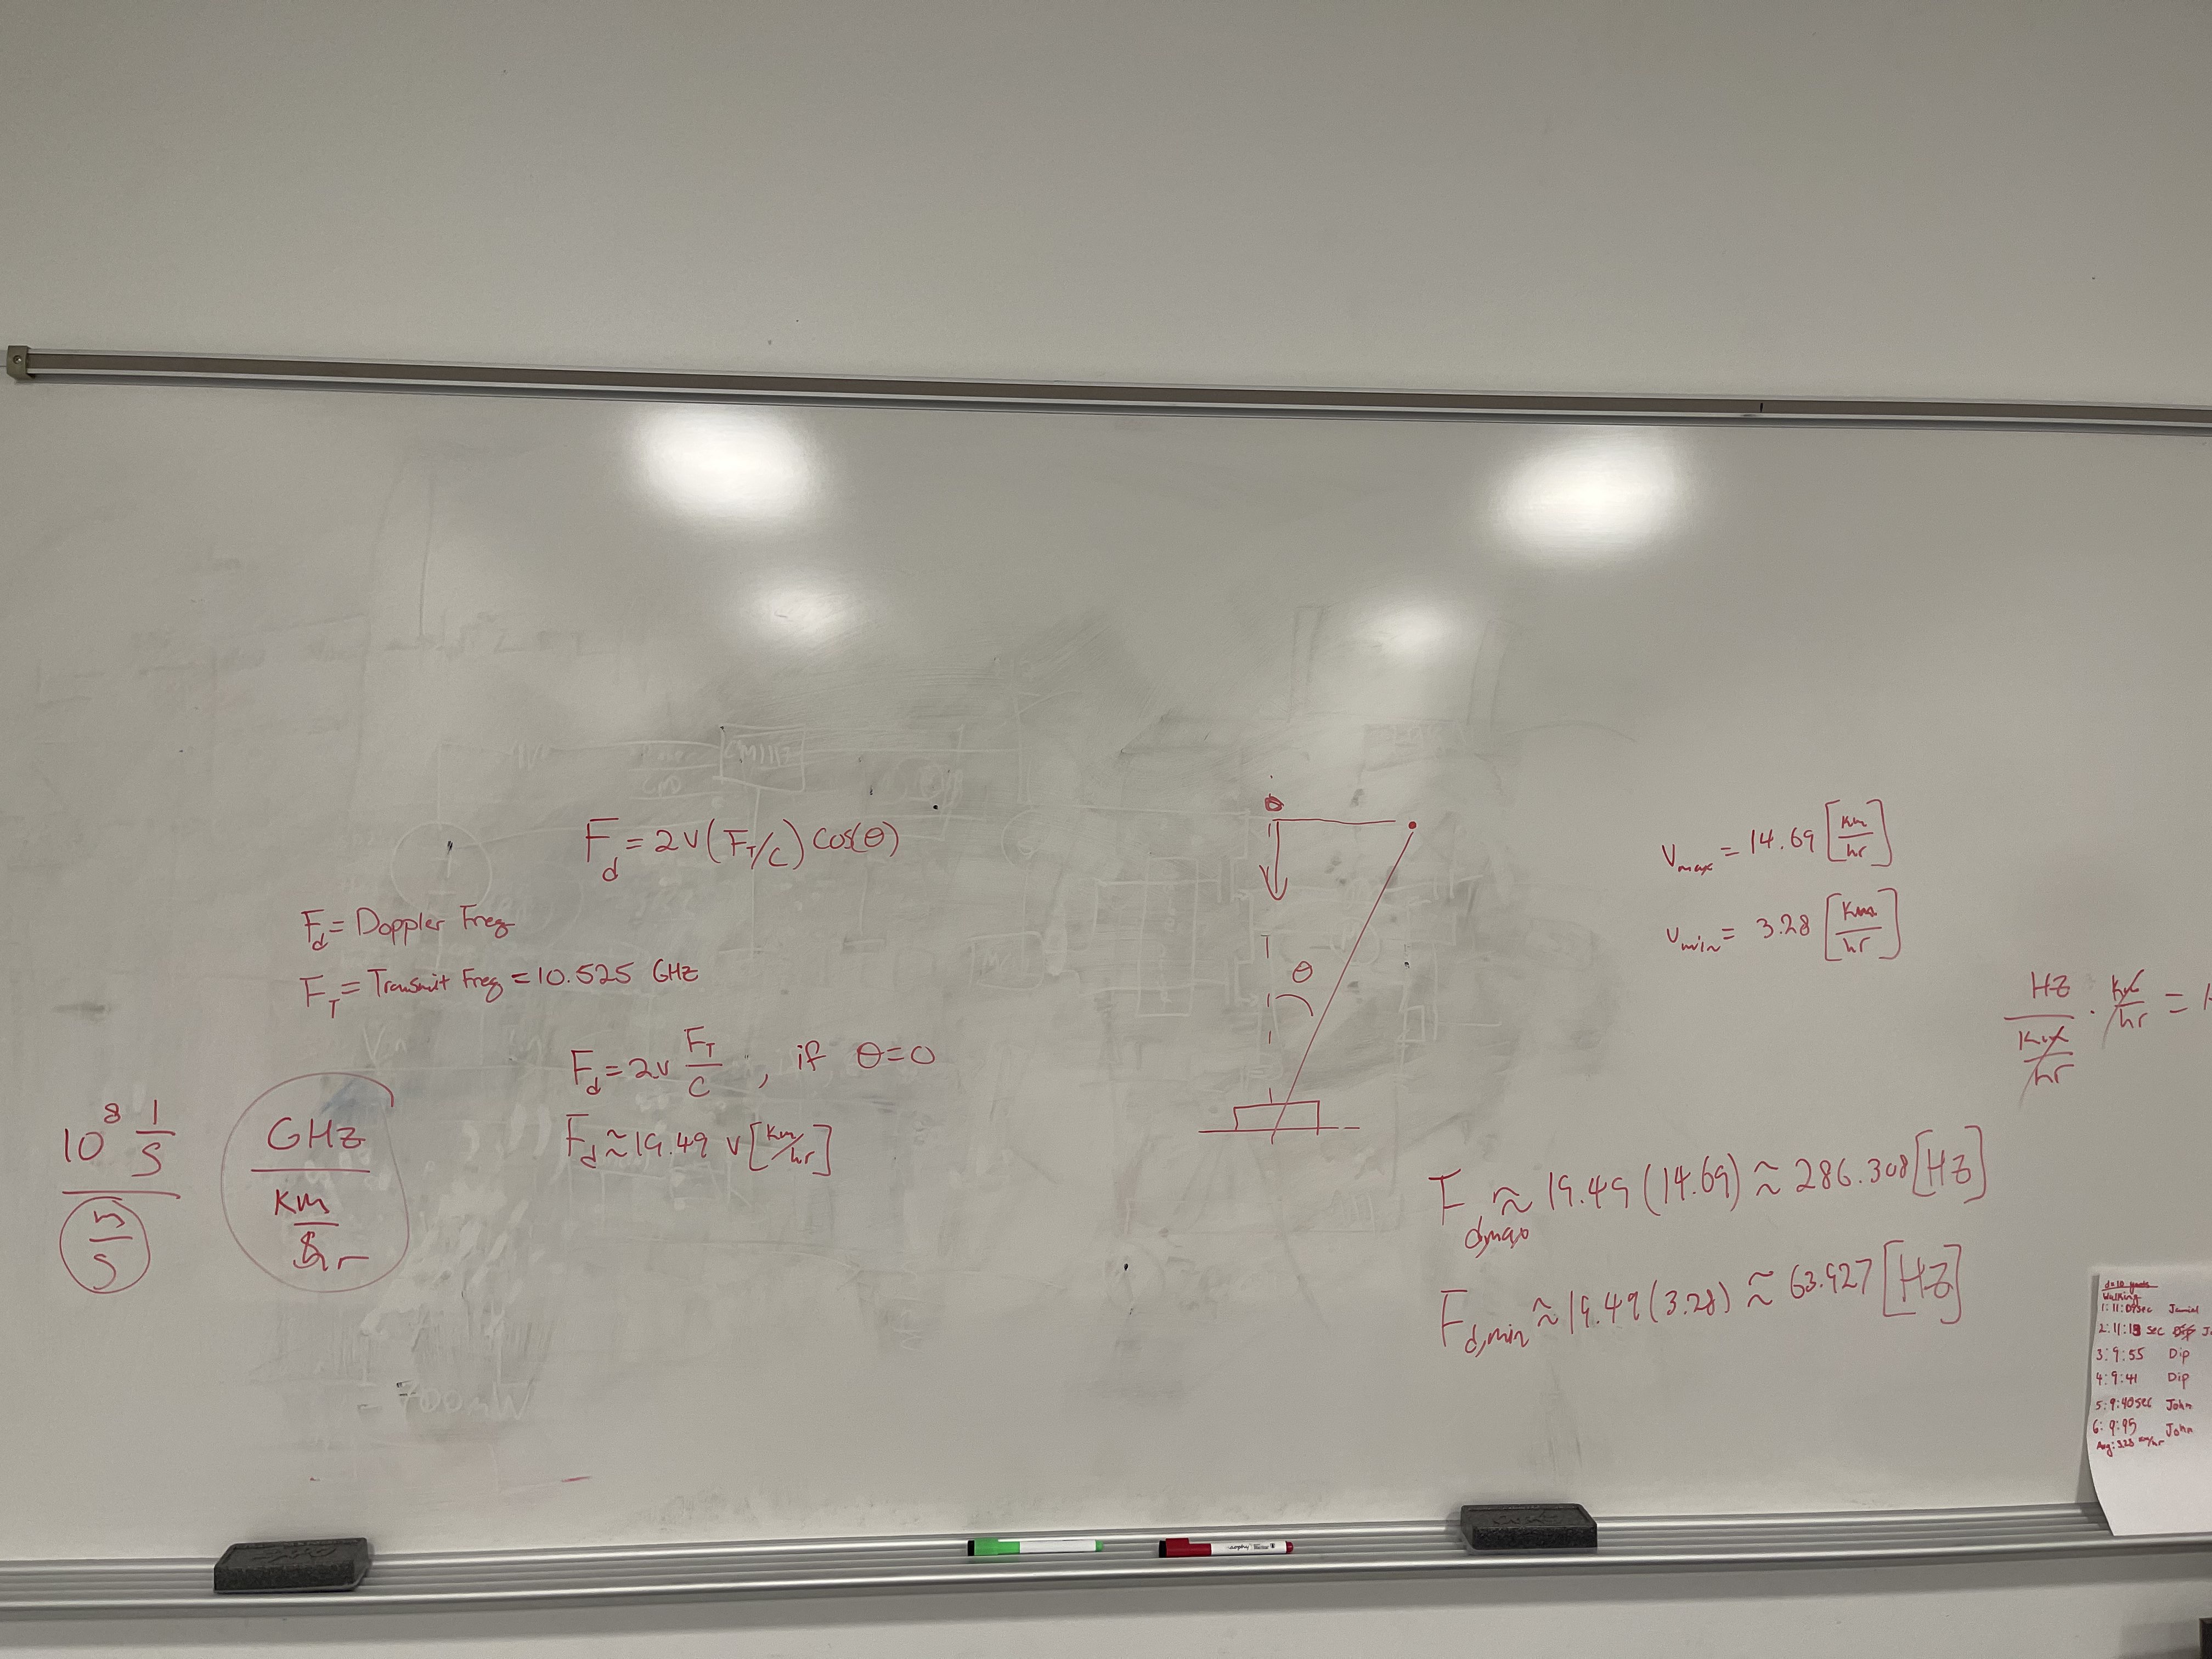 F_d = 2v(F_T/c) cos(θ)
F_d = Doppler Freq
F_T = Transmit Freq = 10.525 GHz
F_d = 2v F_T/c , if θ=0
F_d ≈ 19.49 v [km/hr]
10^8 1/s
m/s
GHz
km
hr
θ
v_max = 14.69 [km/hr]
v_min = 3.28 [km/hr]
HZ/(km/hr) · km/hr =
F_d,max ≈ 19.49 (14.69) ≈ 286.308 [HZ]
F_d,min ≈ 19.49 (3.28) ≈ 63.927 [HZ]
d=10 yards
Walking
1: 11:09sec Jamiel
2: 11:13 sec
3: 9:55 Dip
4: 9:41 Dip
5: 9:40sec John
6: 9:95 John
Avg: 3.28 km/hr
700mW